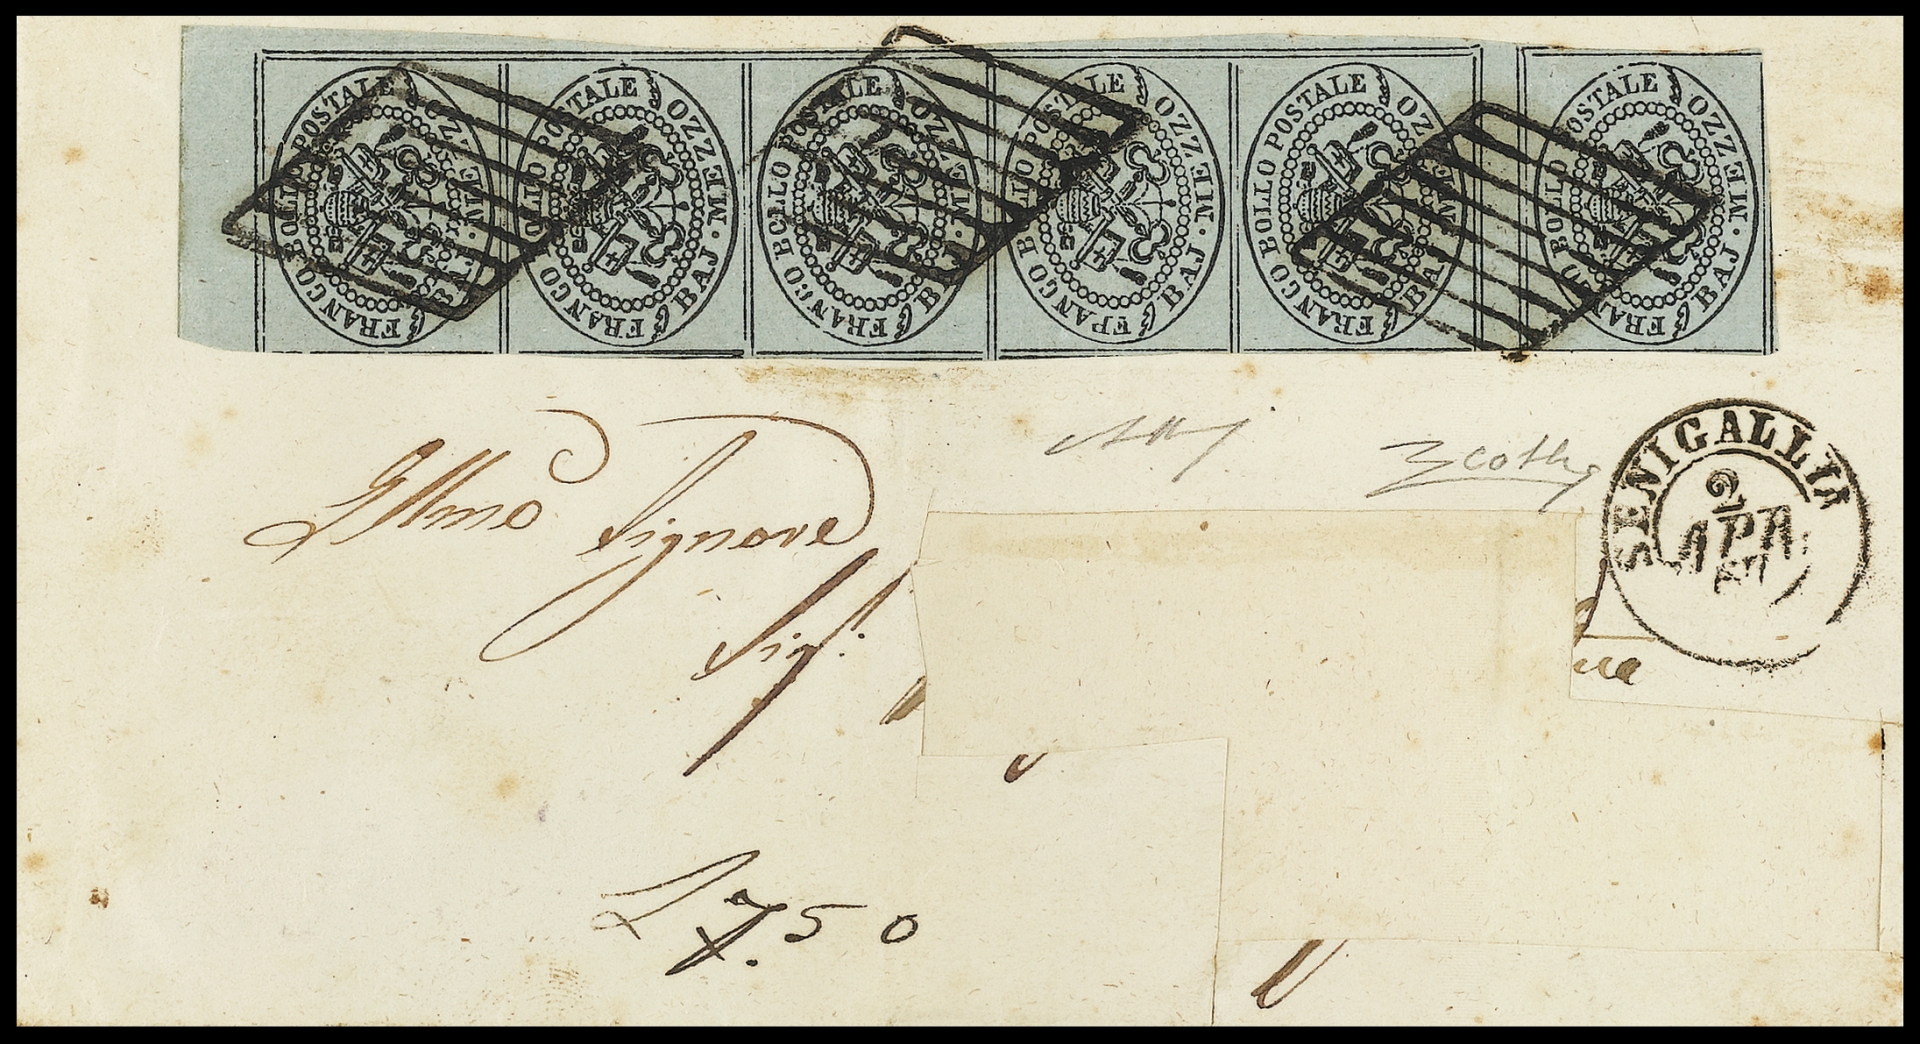 FRANCO BOLLO POSTALE MEZZO BAJ.
FRANCO BOLLO POSTALE MEZZO BAJ.
FRANCO BOLLO POSTALE MEZZO BAJ.
FRANCO BOLLO POSTALE MEZZO BAJ.
FRANCO BOLLO POSTALE MEZZO BAJ.
FRANCO BOLLO POSTALE MEZZO BAJ.
SENIGALLIA
2
APR
Illmo Signore
Sig.
L 7.50